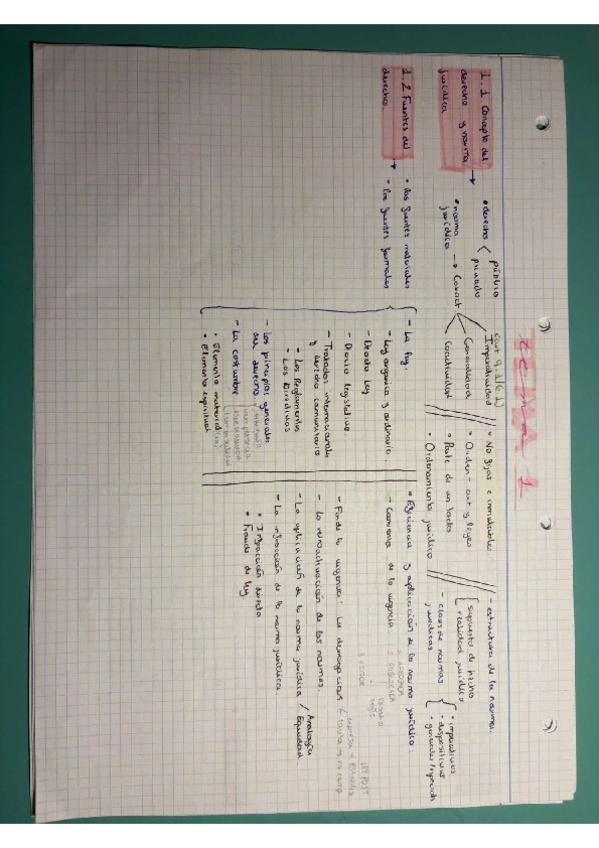 tema 1
1.1 Concepto del
derecho y norma
jurídica
• derecho
público
privado
• norma
jurídica → Caract
Imperatividad
Generalidad
Coactividad
• No fijas e inmutables.
• Orden - const y leyes
• Parte de un todo
• Ordenamiento jurídico
- estructura de la norma:
supuesto de hecho
realidad jurídica
- clases de normas
jurídicas
• imperativas
• dispositivas
• generales/especiales
1.2 Fuentes del
derecho.
• las fuentes materiales
• las fuentes formales
- La ley.
- Ley orgánica y ordinaria.
- Decreto Ley
- Decreto legislativo.
- Tratados internacionales
y derecho comunitario
- Los Reglamentos
- Las Directivas
- Los principios generales
del derecho
- La costumbre
• Elemento material
• Elemento espiritual
• Eficiencia y aplicación de la norma jurídica:
- Comienzo de la vigencia
- Fin de la vigencia: La derogación
- La retroactivación de las normas.
- La aplicación de la norma jurídica / Analogía
Equidad
- La infracción de la norma jurídica.
• Infracción directa
• Fraude de ley.